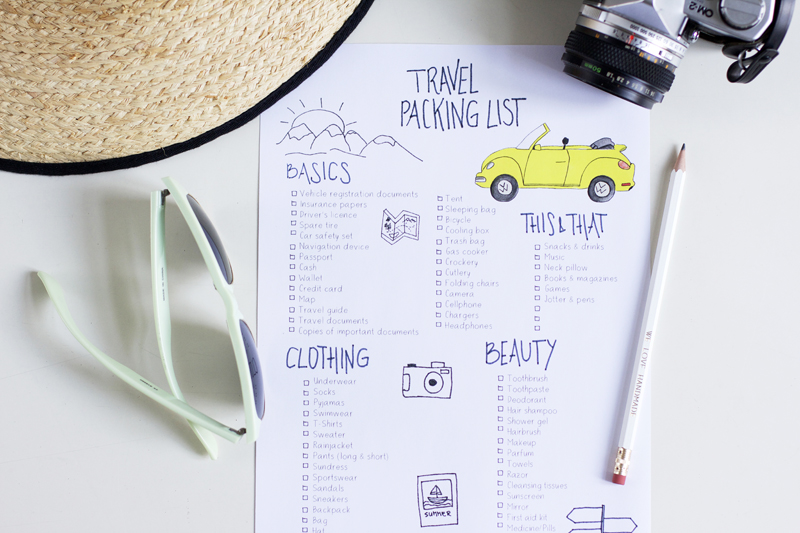 TRAVEL
PACKING LIST
BASICS
Vehicle registration documents
Insurance papers
Driver's licence
Spare tire
Car safety set
Navigation device
Passport
Cash
Wallet
Credit card
Map
Travel guide
Travel documents
Copies of important documents
Tent
Sleeping bag
Bicycle
Cooling box
Trash bag
Gas cooker
Crockery
Cutlery
Folding chairs
Camera
Cellphone
Chargers
Headphones
THIS & THAT
Snacks & drinks
Music
Neck pillow
Books & magazines
Games
Jotter & pens
CLOTHING
Underwear
Socks
Pyjamas
Swimwear
T-Shirts
Sweater
Rainjacket
Pants (long & short)
Sundress
Sportswear
Sandals
Sneakers
Backpack
Bag
Hat
SUMMER
BEAUTY
Toothbrush
Toothpaste
Deodorant
Hair shampoo
Shower gel
Hairbrush
Makeup
Parfum
Towels
Razor
Cleansing tissues
Sunscreen
Mirror
First aid kit
Medicine/Pills
OM-2
50mm
WE LOVE HANDMADE